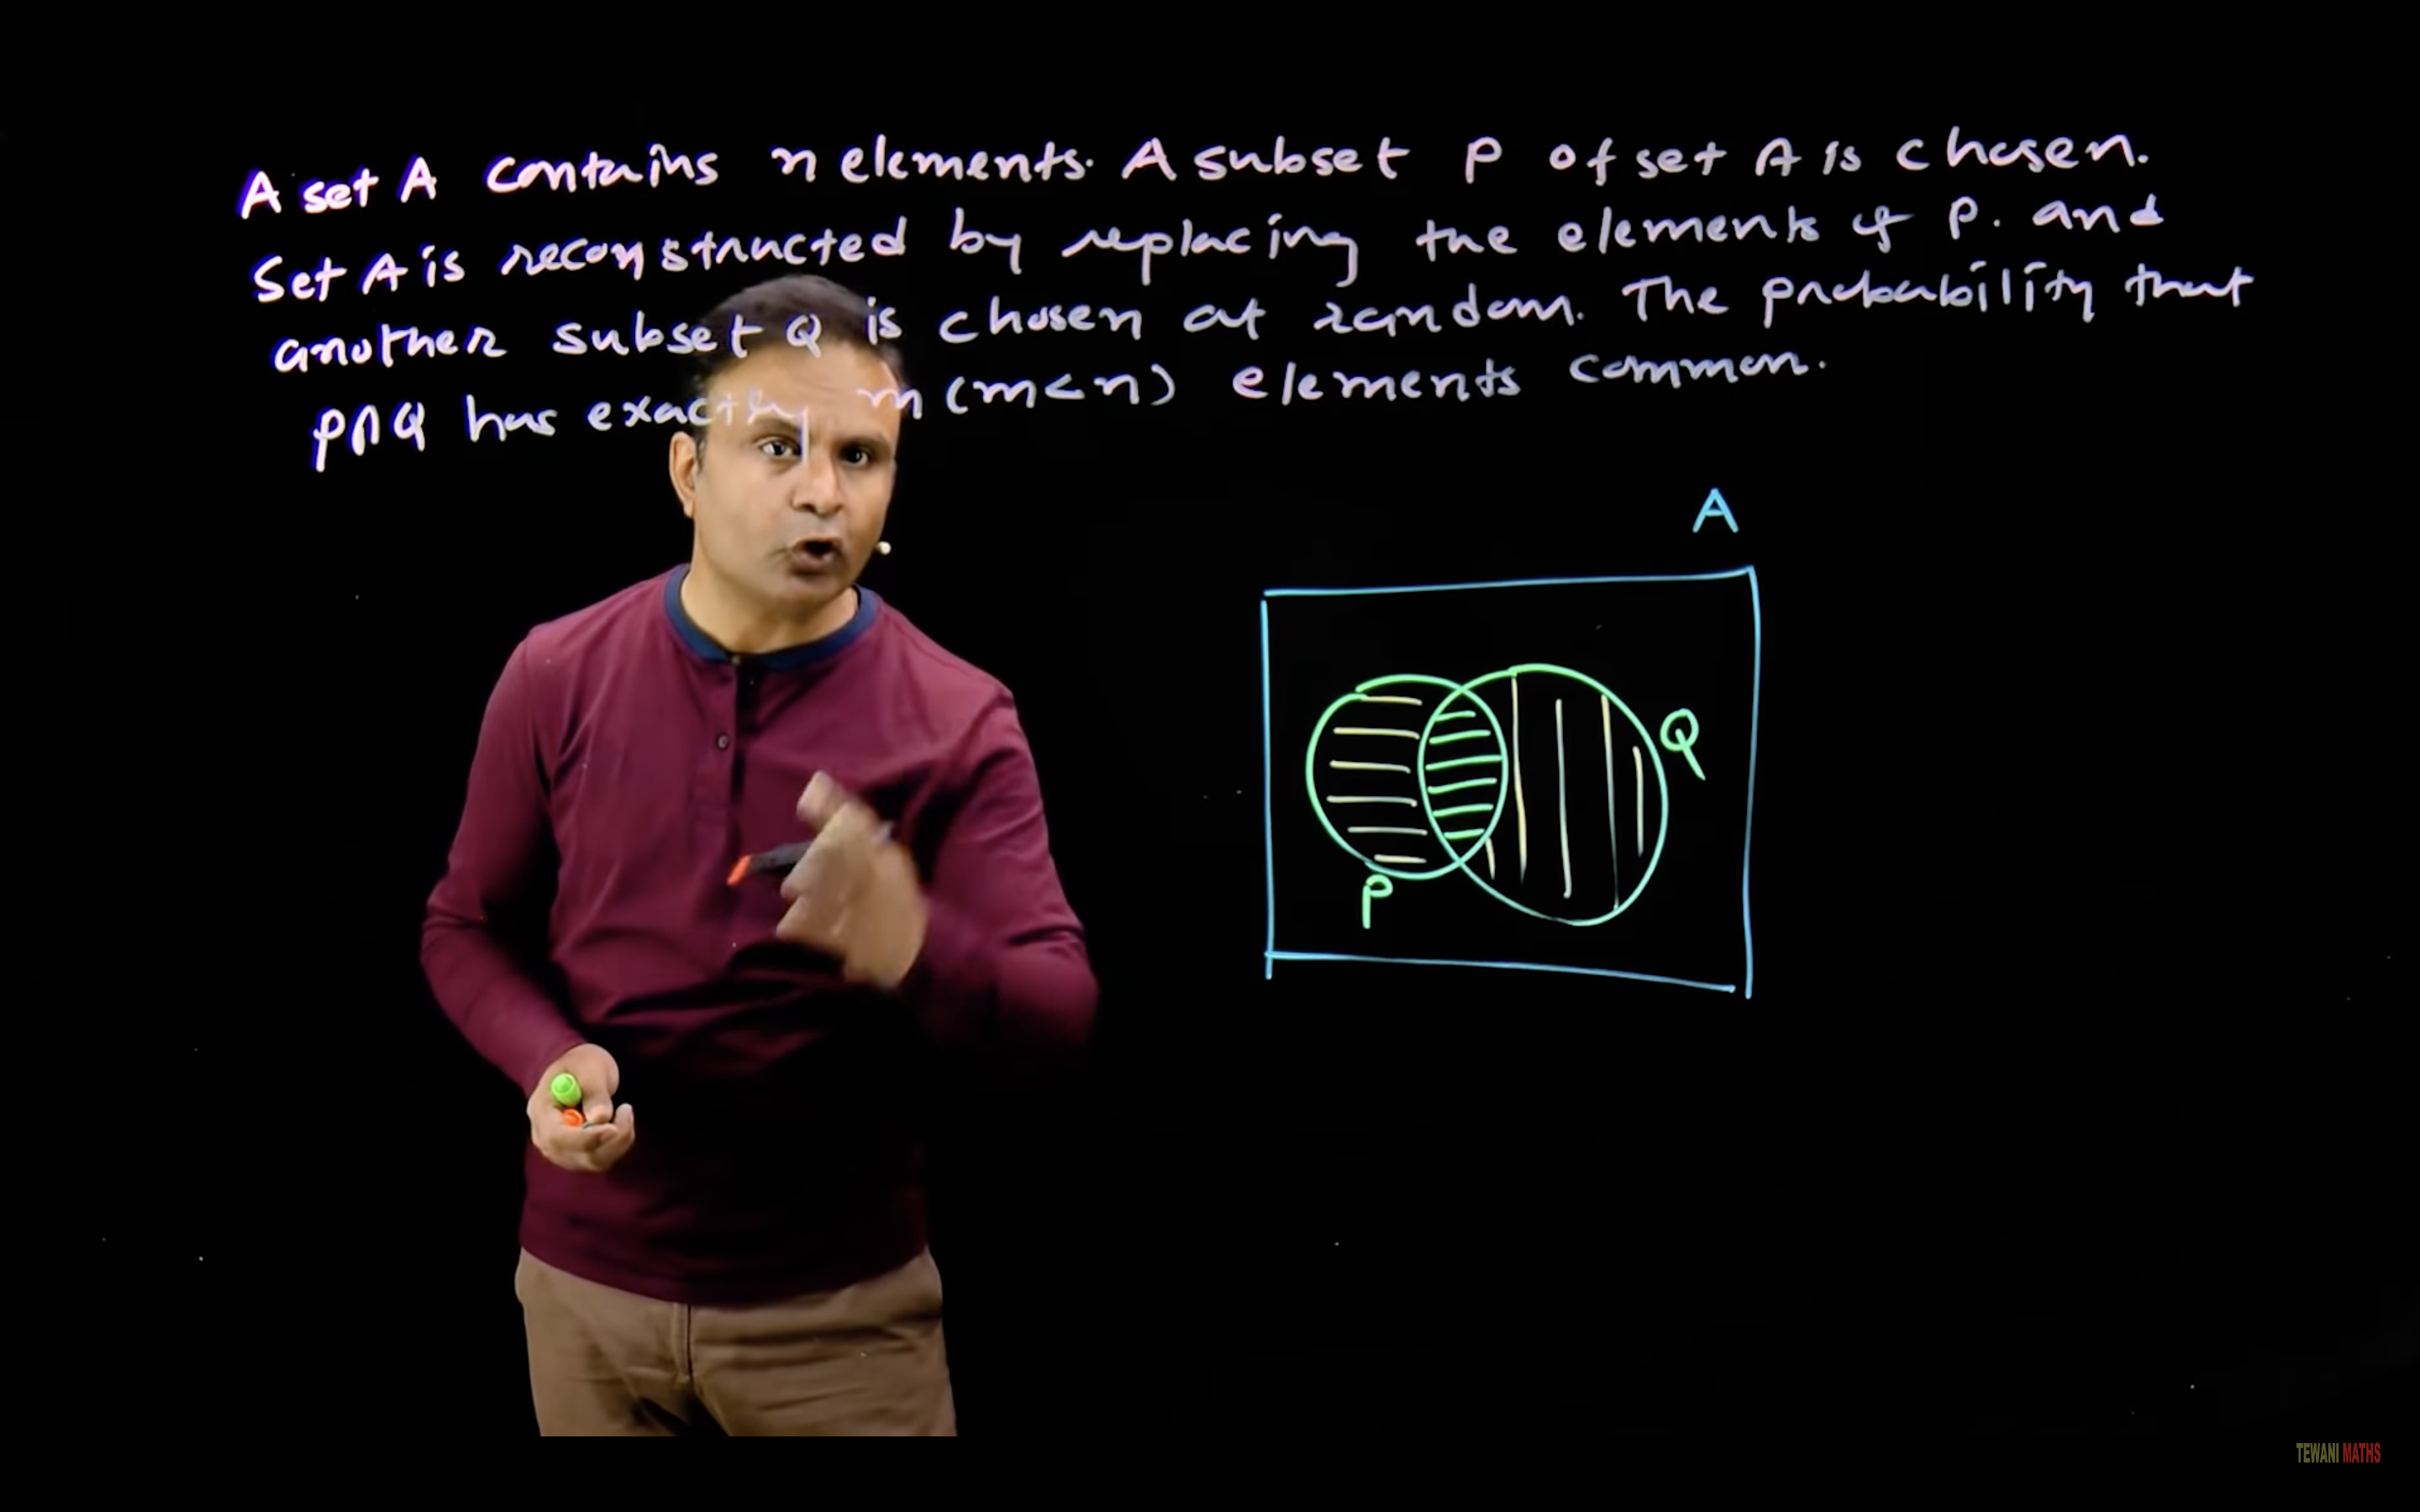 A set A contains n elements. A subset P of set A is chosen.
Set A is reconstructed by replacing the elements of P. and
another subset Q is chosen at random. The probability that
P∩Q has exactly m (m<n) elements common.
A
Q
P
TEWANI MATHS